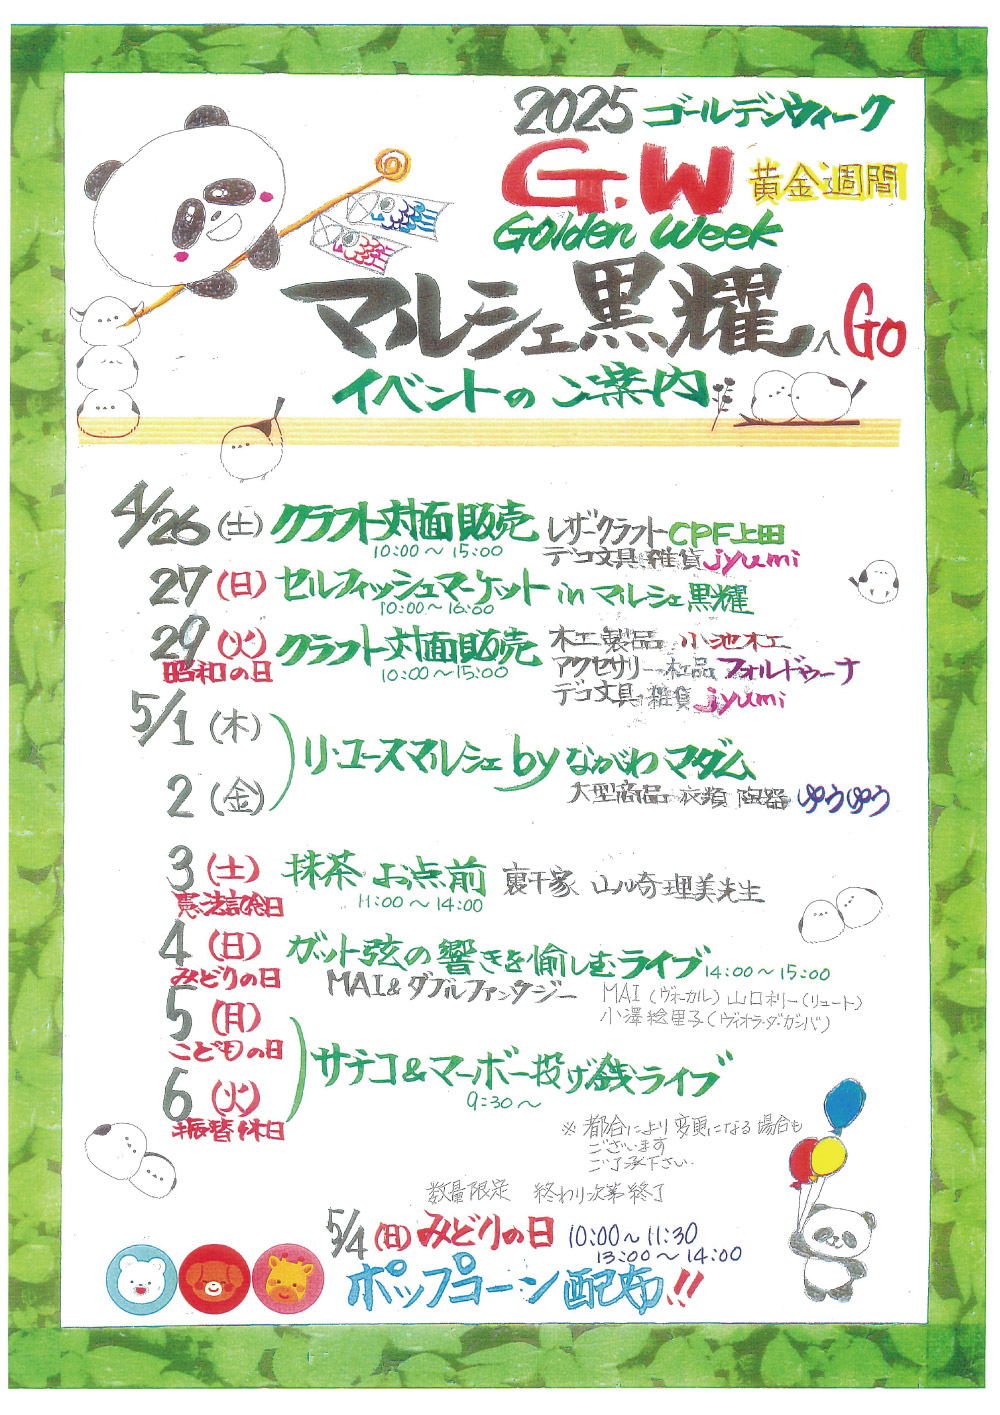 2025 ゴールデンウィーク
G.W 黄金週間
Golden Week
マルシェ黒耀へGo
イベントのご案内
4/26(土) クラフト対面販売 レザークラフトCPF上田
10:00〜15:00 デコ文具 雑貨 jyumi
27(日) セルフィッシュマーケット in マルシェ黒耀
10:00〜16:00
29(火) クラフト対面販売 木工製品 小池木工
昭和の日 10:00〜15:00 アクセサリー 小品 フォルドゥーナ
デコ文具 雑貨 jyumi
5/1(木)
リ・ユースマルシェ by ながわマダム
2(金) 大型商品 衣類 陶器 ゆうゆう
3(土) 抹茶 お点前 裏千家 山崎理美先生
憲法記念日 11:00〜14:00
4(日) ガット弦の響きを愉しむライブ 14:00〜15:00
みどりの日 MAI&ダブルファンタジー MAI(ヴォーカル) 山口(リュート)
小澤絵里子(ヴィオラ・ダ・ガンバ)
5(月)
こどもの日 サチコ&マーボー投げ銭ライブ
6(火) 9:30〜
振替休日
※都合により変更になる場合も
ございます
ご了承下さい.
数量限定 終わり次第終了
5/4(日)みどりの日 10:00〜11:30
13:00〜14:00
ポップコーン配布!!